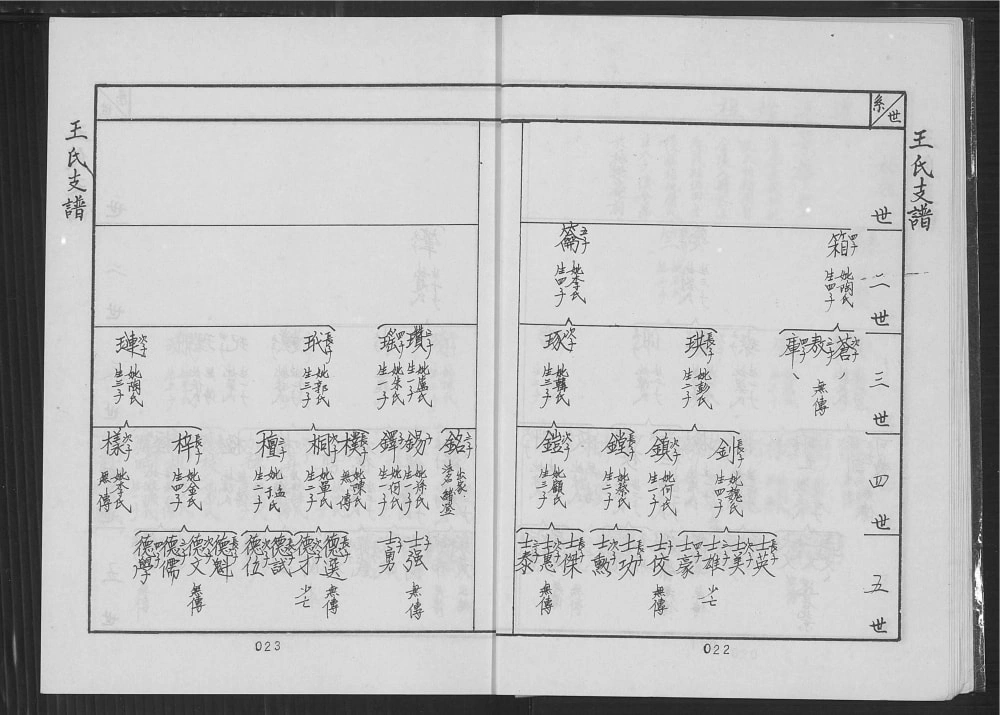 王氏支譜
系世
世
二世
三世
四世
五世
箱 四子 妣陶氏 生四子
五子 妣李氏 生四子
蒼 次子
敖 三子
庫 四子
無傳
珙 長子 妣彭氏 生二子
琢 次子 妣韓氏 生三子
釗 長子 妣魏氏 生四子
鎮 次子 妣何氏 生一子
鏜 長子 妣秦氏 生二子
鎧 次子 妣顧氏 生三子
士英 長子
士美 次子
士雄 三子 少亡
士豪 四子
士佼 子 無傳
士功 長子
士勲 次子
士傑 長子
士惠 次子 無傳
士泰 三子
022
王氏支譜
瓚 三子 妣盧氏 生一子
瑤 四子 妣朱氏 生一子
珉 長子 妣郭氏 生三子
璉 次子 妣陶氏 生三子
銘 三子 出家
錫 子 妣許氏 生一子
鐸 子 妣何氏 生一子
樸 長子 妣陳氏 無傳
桐 次子 妣單氏 生二子
檀 三子 妣孟氏 生二子
梓 長子 妣金氏 生四子
樣 次子 妣李氏 無傳
士强 子 無傳
士勇 子
德選 長子 無傳
德才 次子 少亡
德試 長子
德伍 次子
德魁 長子
德文 次子 無傳
德儒 三子
德學 四子
023